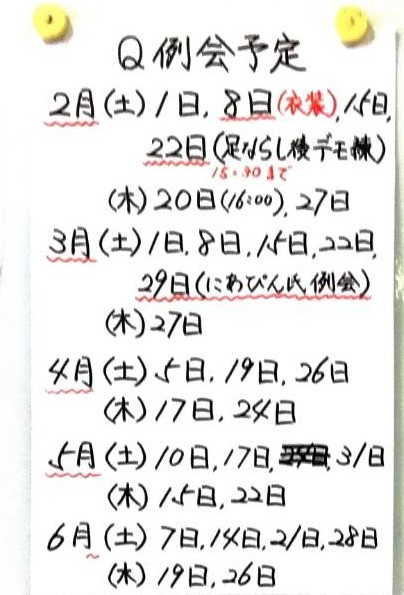 Q例会予定
2月(土)1日,8日(衣装),15日,
22日(足ならし後デモ練)
15:30まで
(木)20日(16:00),27日
3月(土)1日,8日,15日,22日,
29日(にあぴん氏例会)
(木)27日
4月(土)5日,19日,26日
(木)17日,24日
5月(土)10日,17日,31日
(木)15日,22日
6月(土)7日,14日,21日,28日
(木)19日,26日